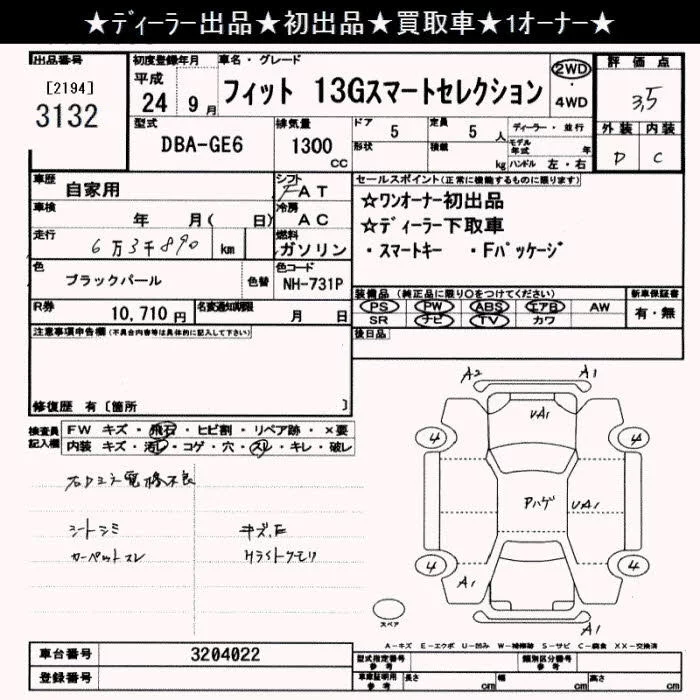 ★ﾃﾞｨｰﾗｰ出品★初出品★買取車★1ｵｰﾅｰ★
出品番号
[2194]
3132
初度登録年月
平成
24年 9月
車名・グレード
フィット 13Gスマートセレクション
2WD
・
4WD
評価点
3,5
外装 内装
D C
型式
DBA-GE6
排気量
1300
CC
ドア 5
形状
定員 5 人
積載 kg
ディーラー・並行
モデル年式 年
ハンドル 左・右
車歴
自家用
シフト
FAT
車検
年 月( 日)
冷房
AC
走行
6万3千890 km
燃料
ガソリン
色
ブラックパール
色替
色コード
NH-731P
R券
10,710 円
名変通知期限
月 日
セールスポイント(正常に機能するものに限ります)
★ワンオーナー初出品
★ディーラー下取車
・スマートキー ・Fパッケージ
装備品 (純正品に限り○をつけてください)
PS PW ABS エアB AW
SR ナビ TV カワ
新車保証書
有・無
後日品
注意事項申告欄(不具合内容等は具体的に記入して下さい)
修復歴 有〔箇所 〕
検査員
記入欄
FW キズ・飛石・ヒビ割・リペア跡・×要
内装 キズ・汚レ・コゲ・穴・スレ・キレ・破レ
不良
シートシミ
カーペットスレ
キズ,E
A2
A1
UA1
4
4
Aハゲ
UA1
4
4
A1
A1
スペア
A-キズ E-エクボ U-凹み W-補修跡 S-サビ C-腐食 XX-交換済
車台番号
3204022
登録番号
型式指定番号
参考
類別区分番号
参考
車庫証明用
参考
長さ cm
幅 cm
高さ cm